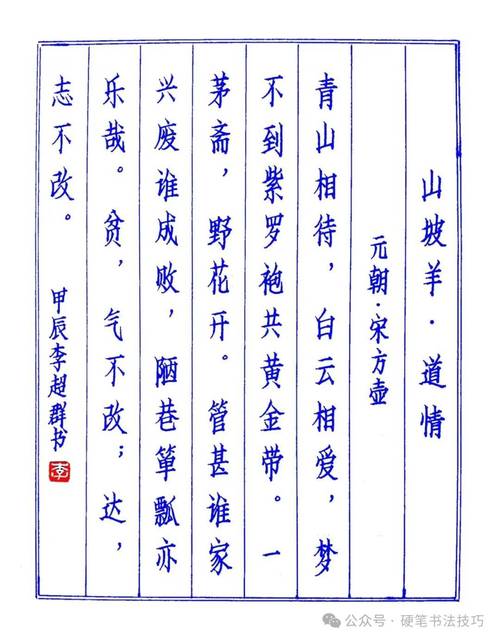 山坡羊·道情
元朝·宋方壶
青山相待，白云相爱，梦
不到紫罗袍共黄金带。一
茅斋，野花开。管甚谁家
兴废谁成败，陋巷箪瓢亦
乐哉。贫，气不改；达，
志不改。
甲辰李超群书
李
公众号·硬笔书法技巧